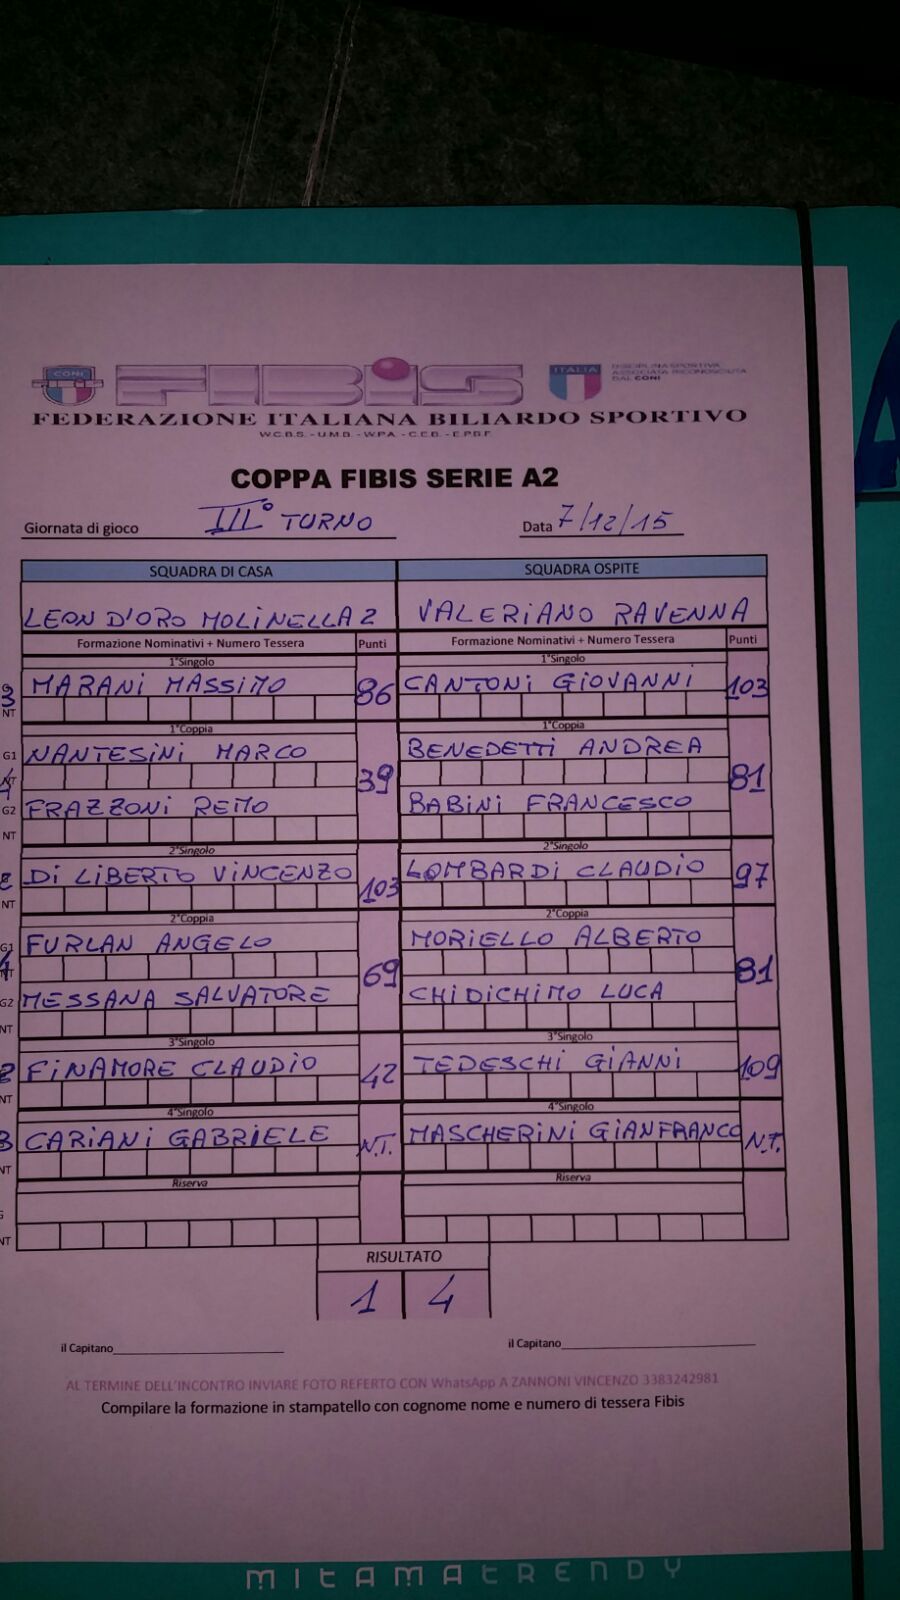 CONI
FIBiS
ITALIA
DISCIPLINA SPORTIVA
ASSOCIATA RICONOSCIUTA
DAL CONI
FEDERAZIONE ITALIANA BILIARDO SPORTIVO
W.C.B.S. - U.M.B. - W.P.A. - C.E.B. - E.P.B.F.
COPPA FIBIS SERIE A2
Giornata di gioco III° TURNO Data 7/12/15
SQUADRA DI CASA SQUADRA OSPITE
LEON D'ORO MOLINELLA 2 VALERIANO RAVENNA
Formazione Nominativi + Numero Tessera Punti Formazione Nominativi + Numero Tessera Punti
1°Singolo 1°Singolo
3 MARANI MASSIMO 86 CANTONI GIOVANNI 103
NT
1°Coppia 1°Coppia
G1 NANTESINI MARCO BENEDETTI ANDREA
NT 39 81
G2 FRAZZONI REMO BABINI FRANCESCO
NT
2°Singolo 2°Singolo
DI LIBERTO VINCENZO 103 LOMBARDI CLAUDIO 97
NT
2°Coppia 2°Coppia
G1 FURLAN ANGELO MORIELLO ALBERTO
NT 69 81
G2 MESSANA SALVATORE CHIDICHIMO LUCA
NT
3°Singolo 3°Singolo
FINAMORE CLAUDIO 42 TEDESCHI GIANNI 109
NT
4°Singolo 4°Singolo
3 CARIANI GABRIELE N.T. MASCHERINI GIANFRANCO N.T.
NT
Riserva Riserva
G
NT
RISULTATO
1 4
il Capitano il Capitano
AL TERMINE DELL'INCONTRO INVIARE FOTO REFERTO CON WhatsApp A ZANNONI VINCENZO 3383242981
Compilare la formazione in stampatello con cognome nome e numero di tessera Fibis
MITAMATRENDY